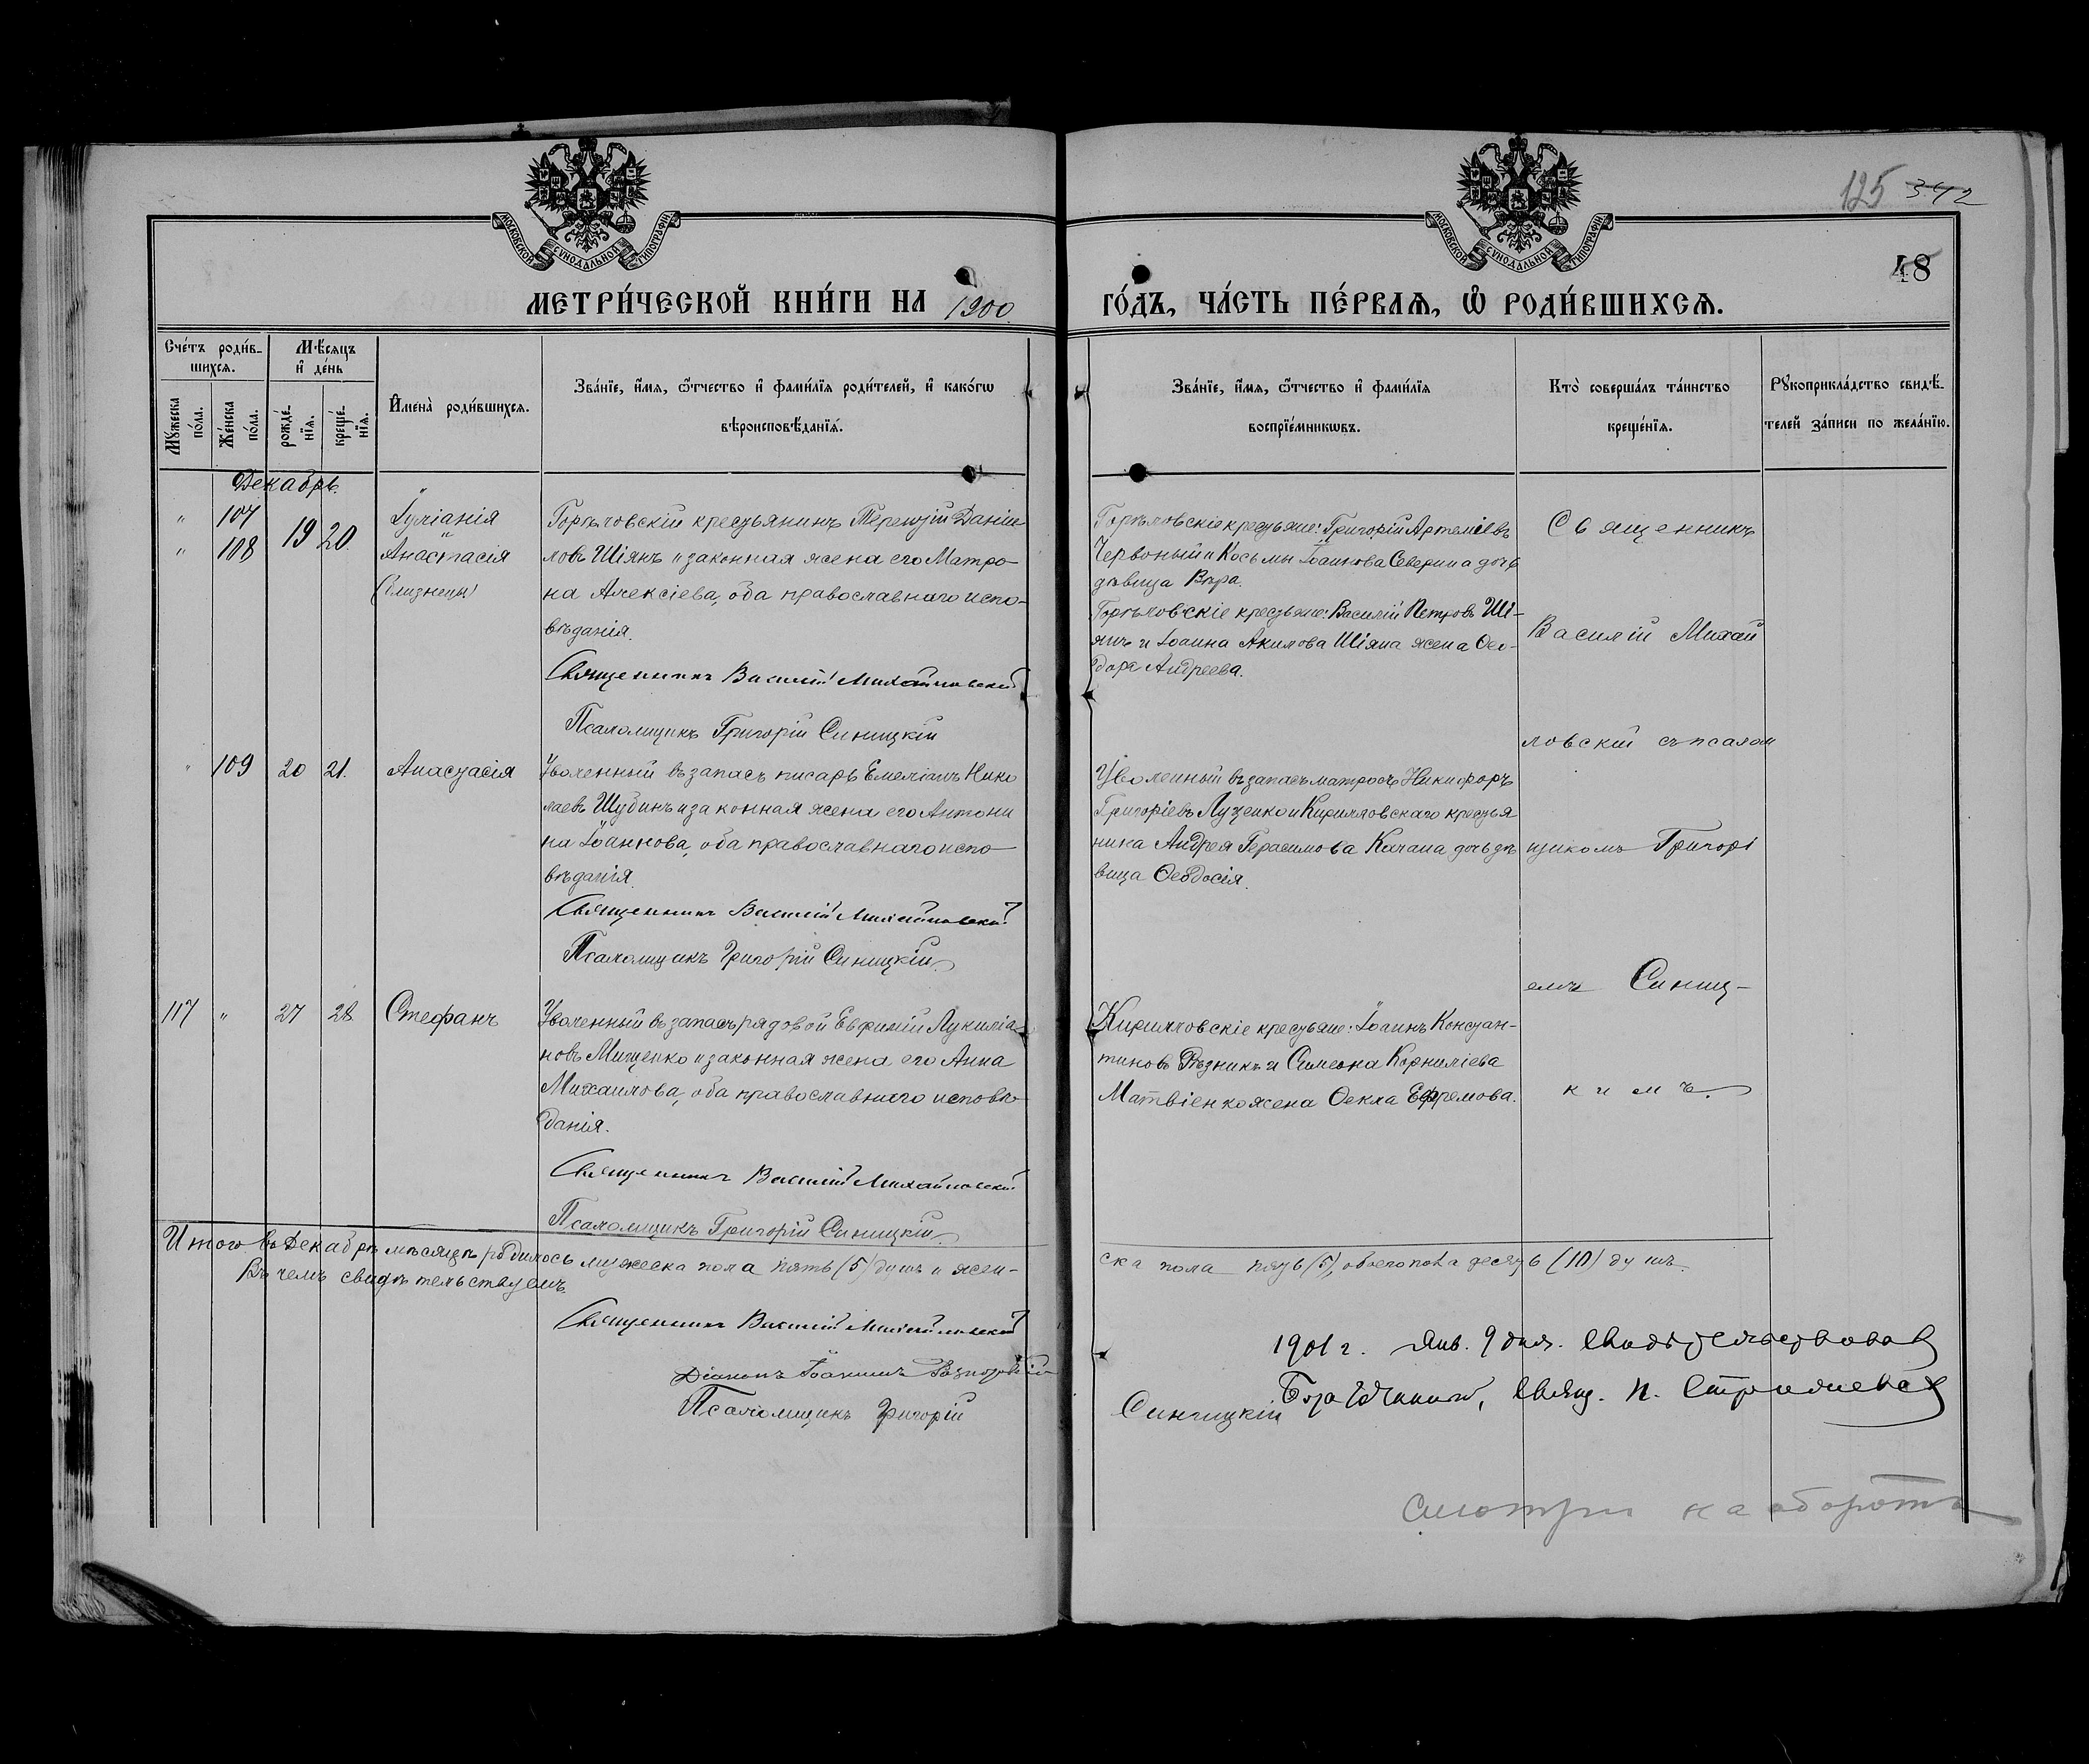 125 342
МОСКОВСКОЙ СѴНОДАЛЬНОЙ ТИПОГРАФІИ
МОСКОВСКОЙ СѴНОДАЛЬНОЙ ТИПОГРАФІИ
48
МЕТРИ́ЧЕСКОЙ КНИ́ГИ НА 1900 ГО́ДЪ, ЧА́СТЬ ПЕ́РВАѦ, Ѽ РОДИ́ВШИХСѦ.
Сче́тъ роди́в-
шихся.
Мꙋ́жеска по́ла.
Же́нска по́ла.
Мѣ́сяцъ
и҆ де́нь
рожде́-
нїя.
креще́-
нїя.
И҆мена̀ роди́вшихся.
Зва́нїе, и҆́мя, ѻ҆́тчество и҆ фами́лїя роди́телей, и҆ како́гѡ
вѣроисповѣ́данїя.
Зва́нїе, и҆́мя, ѻ҆́тчество и҆ фами́лїя
воспрїе́мникѡвъ.
Кто̀ соверша́лъ та́инство
креще́нїя.
Рꙋкоприкла́дство свидѣ́-
телей за́писи по жела́нїю.
Декабрь.
" 107 19 20 Іуліанія
" 108 Анастасія
(близнецы)
Горѣловскій крестьянинъ Терентій Даніи
ловъ Шіянъ и законная жена его Матро-
на Алексіева, оба православнаго испо-
вѣданія.
Священникъ Василій Михайловскій
Псаломщикъ Григорій Синицкій
Горѣловскіе крестьяне: Григорій Артеміевъ
Червоный и Косьмы Іоаннова Северина дочь
дѣвица Вѣра.
Горѣловскіе крестьяне: Василій Петровъ Ші-
янъ и Іоанна Акимова Шіяна жена Ѳео-
дора Андреева.
Священникъ
Василій Михай
ловскій съ псалом
" 109 20 21. Анастасія
Уволенный въ запасъ писарь Емеліанъ Нико
лаевъ Шубинъ и законная жена его Антони
на Іоаннова, оба православнаго испо-
вѣданія.
Священникъ Василій Михайловскій
Псаломщикъ Григорій Синицкій
Уволенный въ запасъ матросъ Никифоръ
Григоріевъ Луценко и Кирилловскаго крестья
нина Андрея Герасимова Качана дочь дѣ
вица Ѳеодосія.
щикомъ Григорі
емъ Синиц-
117 " 27 28. Стефанъ
Уволенный въ запасъ рядовой Евфимій Лукиліа
новъ Мищенко и законная жена его Анна
Михаилова, оба православнаго исповѣ
данія.
Священникъ Василій Михайловскій
Псаломщикъ Григорій Синицкій
Кирилловскіе крестьяне: Іоаннъ Констан-
тиновъ Рѣзникъ и Симеона Корниліева
Матвіенко жена Ѳекла Ефремова.
кимъ.
Итого въ Декабрѣ мѣсяцѣ родилось мужеска пола пять (5) душъ и жен-
ска пола пять (5), обоего пола десять (10) душъ.
Въ чемъ свидѣтельствуемъ.
Священникъ Василій Михайловскій
Діаконъ Іоаннъ
Псаломщикъ Григорій Синицкій
1901 г. Янв. 9 дня. Свидѣтельствовалъ
Благочинный, Свящ.
Смотри на оборотѣ